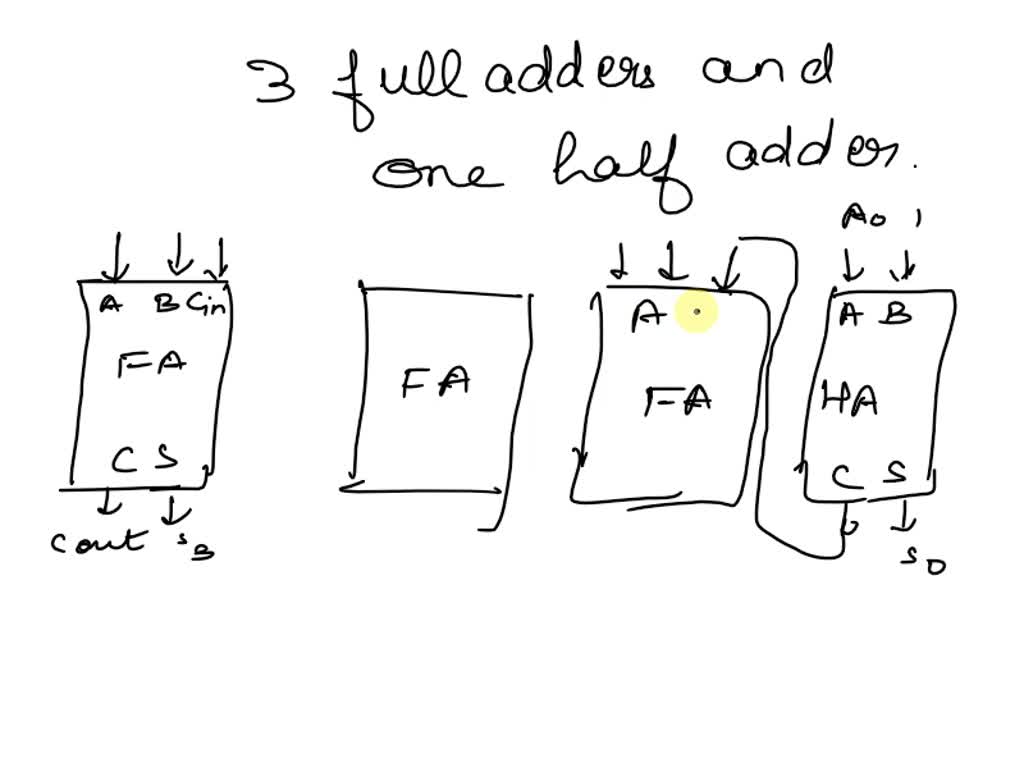 3 full adders and
one half adder.
A0 1
A B Cin
A
A B
FA
FA
FA
HA
C S
C S
Cout S3
S0